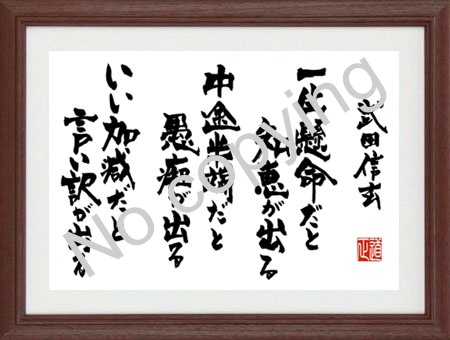 武田信玄
一生懸命だと
知恵が出る
中途半端だと
愚痴が出る
いい加減だと
言い訳が出る
No copying